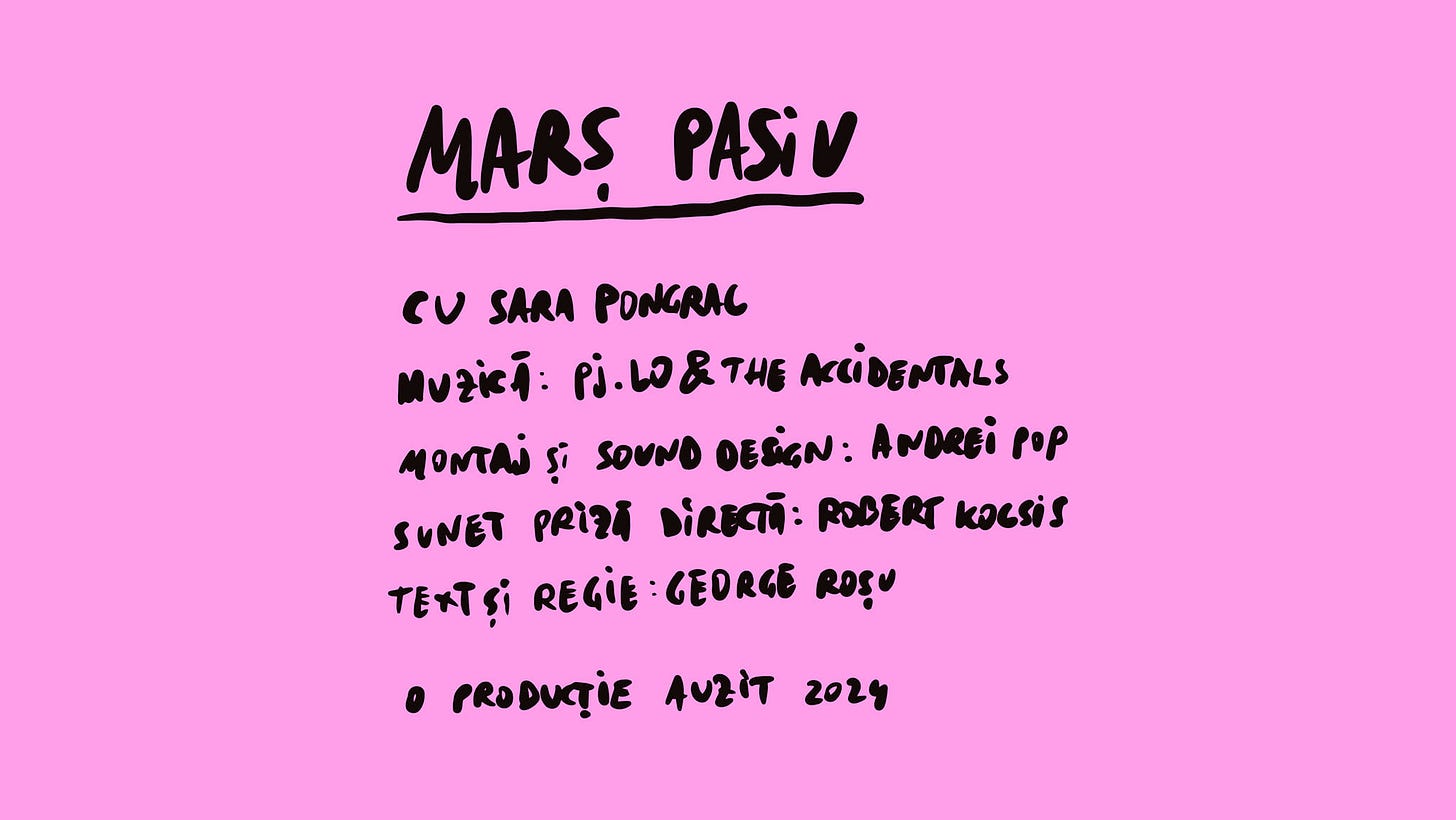 MARȘ PASIV
CU SARA PONGRAC
MUZICĂ: PJ.LO & THE ACCIDENTALS
MONTAJ ȘI SOUND DESIGN: ANDREI POP
SUNET PRIZĂ DIRECTĂ: ROBERT KOCSIS
TEXT ȘI REGIE: GEORGE ROȘU
O PRODUCȚIE AUZIT 2024